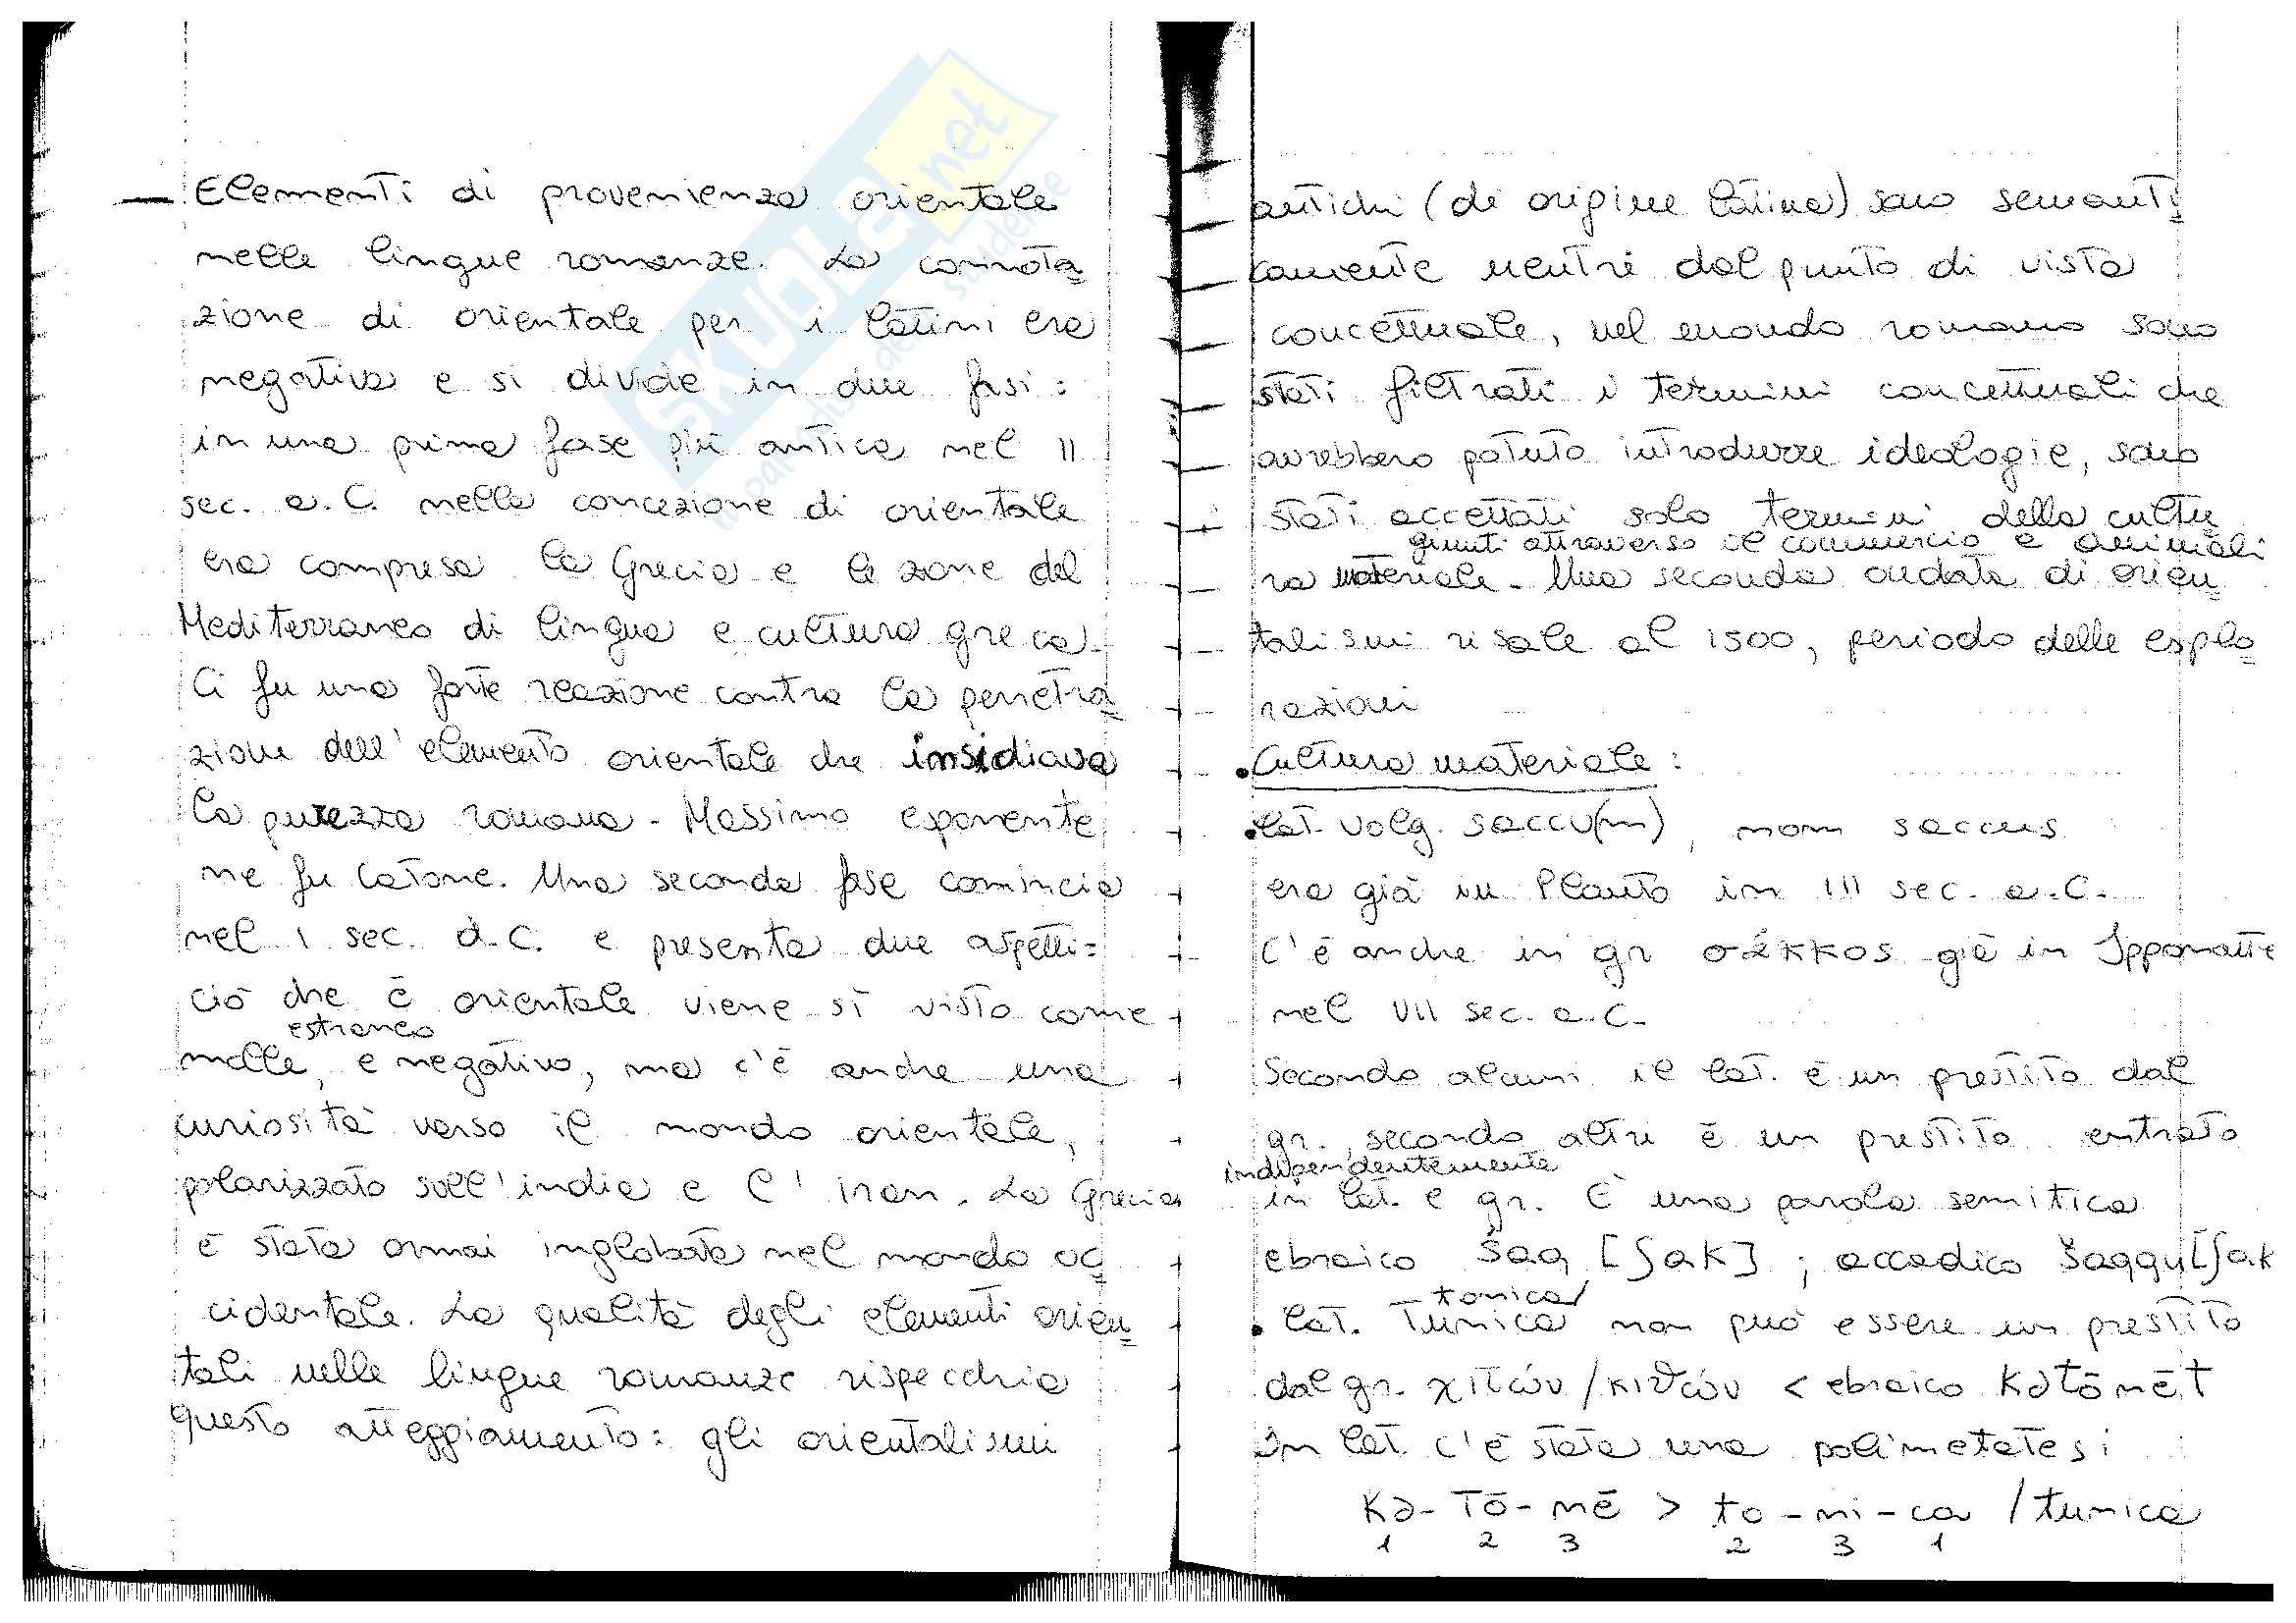 — Elementi di provenienza orientale
nelle lingue romanze. La connota=
zione di orientale per i latini era
negativa e si divide in due fasi:
in una prima fase più antica nel II
sec. a.C. nella concezione di orientale
era compresa la Grecia e le zone del
Mediterraneo di lingua e cultura greca.
Ci fu una forte reazione contro la penetra=
zione dell'elemento orientale che insidiava
la purezza romana. Massimo esponente
ne fu Catone. Una seconda fase comincia
nel I sec. d.C. e presenta due aspetti:
ciò che è orientale viene sì visto come
estraneo
molle, e negativo, ma c'è anche una
curiosità verso il mondo orientale,
polarizzato sull'india e l'iran. La Grecia
è stata ormai inglobata nel mondo oc=
cidentale. La qualità degli elementi orien=
tali nelle lingue romanze rispecchia
questo atteggiamento: gli orientalismi
antichi (di origine latina) sono semanti=
camente neutri dal punto di vista
concettuale, nel mondo romano sono
stati filtrati i termini concettuali che
avrebbero potuto introdurre ideologie, sono
stati accettati solo termini della cultu=
giunti attraverso il commercio e animali
ra materiale. Una seconda ondata di orien=
talismi risale al 1500, periodo delle esplo=
razioni
• Cultura materiale:
• lat. volg. saccu(m), nom saccus
era già in Plauto in III sec. a.C.
C'è anche in gr σάκκος già in Ipponatte
nel VII sec. a.C.
Secondo alcuni il lat. è un prestito dal
gr., secondo altri è un prestito entrato
indipendentemente
in lat. e gr. È una parola semitica
ebraico šaq [ʃak]; accadico šaqqu [ʃak
tonica/
• lat. tunica non può essere un prestito
dal gr. χιτών/κιθών < ebraico Kətōnēt
In lat. c'è stata una polimetatesi
Kə-tō-nē > to-ni-ca /tunica
1 2 3 2 3 1
SKUOLA.net